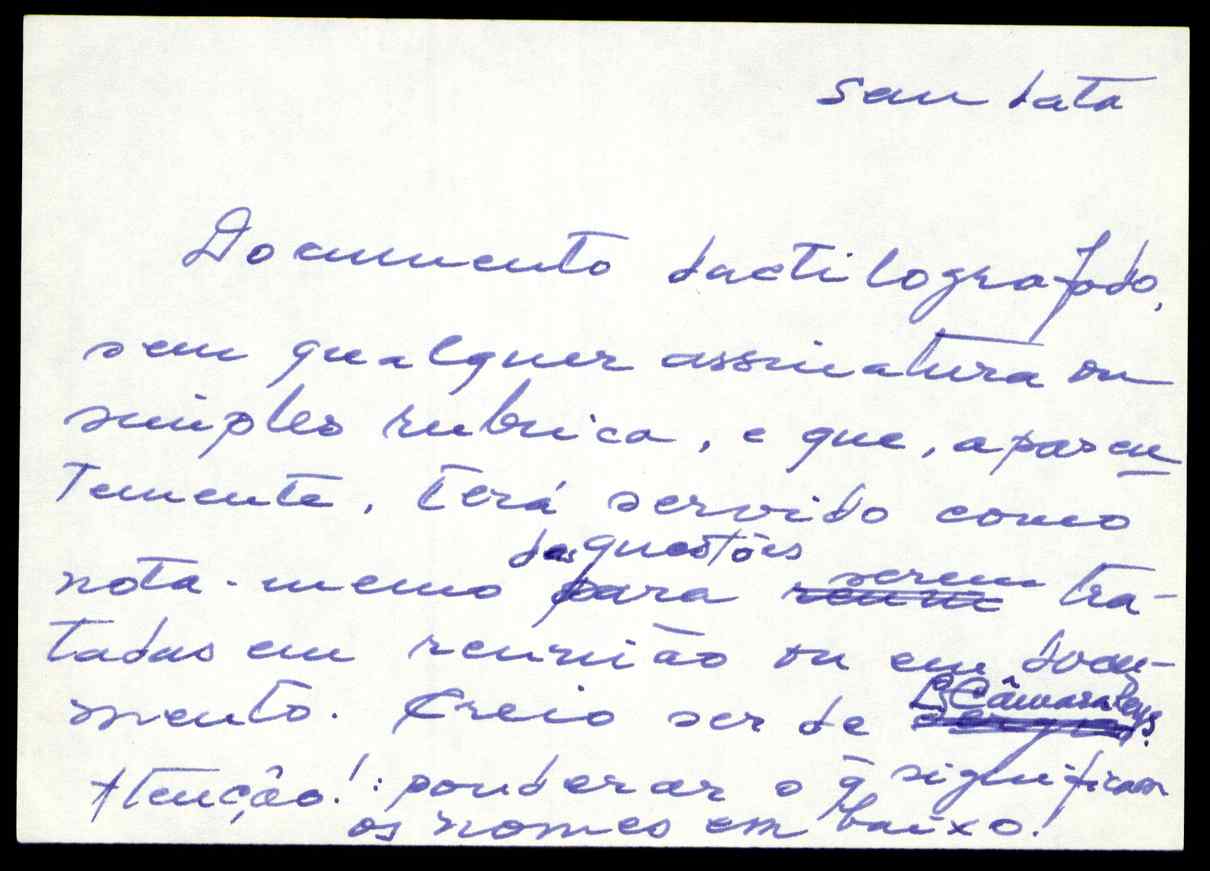 sem data
Documento dactilografado,
sem qualquer assinatura ou
simples rubrica, e que, aparen
temente, terá servido como
das questões
nota-memo para serem tra-
tadas em reunião ou em docu-
mento. Creio ser de L Câmara Reys.
Atenção!: ponderar o q̃ significam
os nomes em baixo!